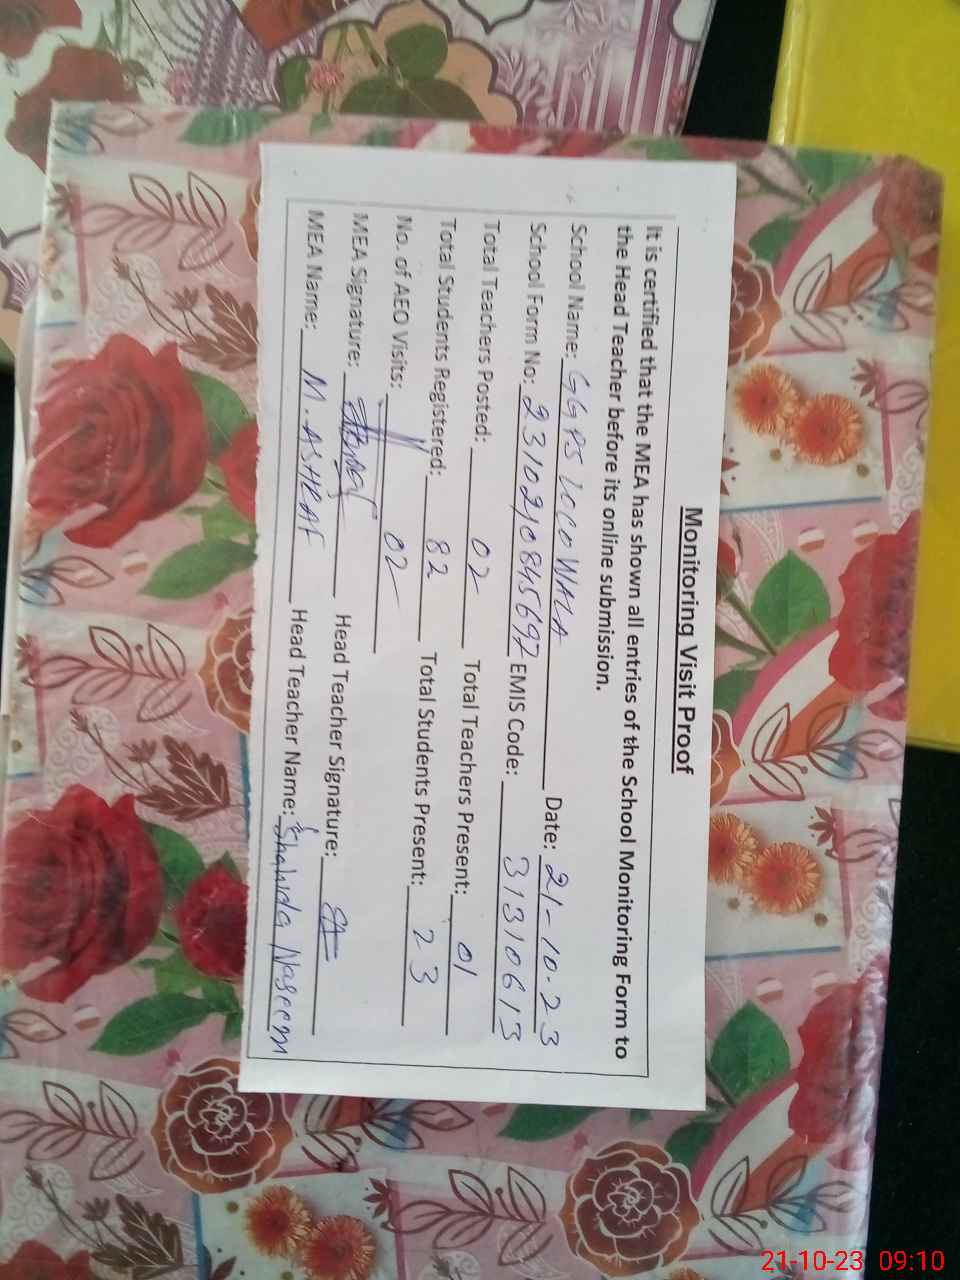 Monitoring Visit Proof
It is certified that the MEA has shown all entries of the School Monitoring Form to
the Head Teacher before its online submission.
School Name: GGPS LOCO WALA Date: 21-10-23
School Form No: 2310210845692 EMIS Code: 31310613
Total Teachers Posted: 02 Total Teachers Present: 01
Total Students Registered: 82 Total Students Present: 23
No. of AEO Visits: 02
MEA Signature: Head Teacher Signature:
MEA Name: M. ASHRAF Head Teacher Name: Shahida Naseem
21-10-23 09:10